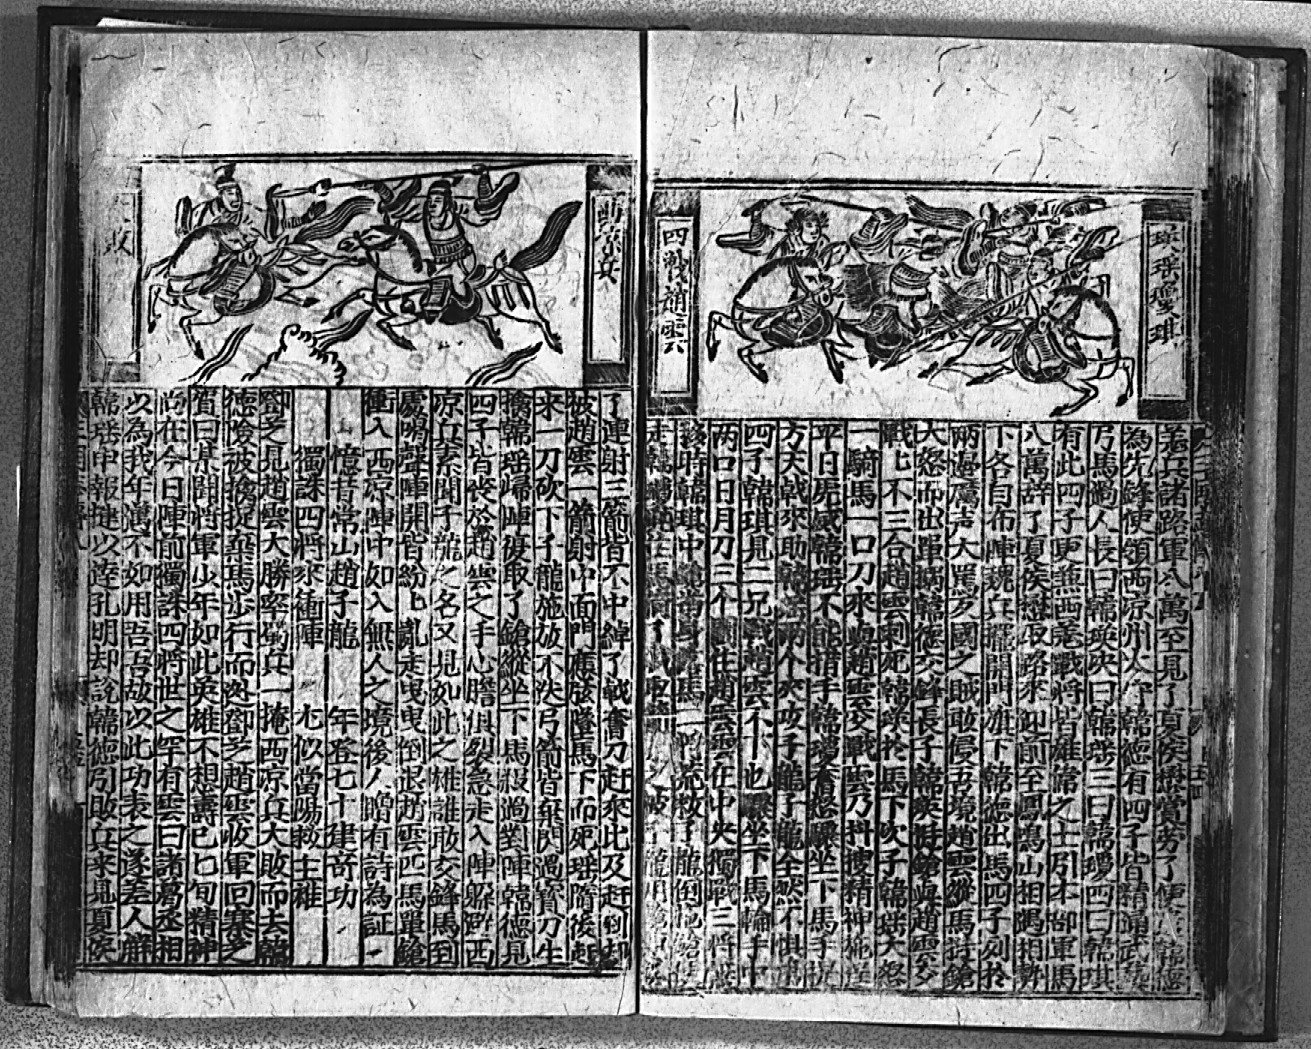 瑛瑶瓊琪
四戰趙雲
羗兵諸路軍八萬至見了夏侯楙賞劳了便
為先鋒使領西凉州大人韓德有四子皆精通武
弓馬過人長曰韓瑛次曰韓瑶三曰韓瓊四曰韓琪
有此四子更兼西羗戰將皆雄偉之士引本部軍馬
八萬辞了夏侯楙取路來迎前至鳳鳴山相遇
下各自布陣魏兵擺開門旗下韓德出馬四子列扵
兩邊厲声大罵反國之賊敢侵吾境趙雲縱馬挺鎗
大怒而出單搦韓德交鋒長子韓瑛挺鎗與趙雲交
戰七不三合趙雲刺死韓瑛扵馬下次子韓瑶大怒
一騎馬一口刀來與趙雲交戰雲乃抖搜精神施逞
平日虎威韓瑶不能措手韓瓊奮怒驟坐下馬手提
方天戟來助韓瑶兩个夾攻子龍子龍全然不惧
四子韓琪見二兄戰趙雲不下也驟坐下馬輪手中
兩口日月刀三个圍住趙雲雲在中央獨戰三將
移時韓琪中鎗
走韓瓊
凉兵
敗
了連射三箭皆不中綽了戟奮刀赶來比及赶到却
被趙雲一箭射中面門應弦墜馬下而死瑶隨後赶
來一刀砍下子龍施放不迭弓箭皆棄閃過寳刀生
擒韓瑶歸陣復取了鎗縱坐下馬殺過對陣韓德見
四子皆喪於趙雲之手心膽俱裂急走入陣躲避西
凉兵素聞子龍之名又見如此之雄誰敢交鋒馬到
處喝聲陣開皆紛乚乱走曳曳倒退趙雲匹馬單鎗
衝入西凉陣中如入無人之境後人贈有詩為証
憶昔常山趙子龍　年登七十建奇功
獨誅四將來衝陣　尤似當陽救主雄
鄧芝見趙雲大勝率蜀兵一掩西凉兵大敗而去韓
德險被擒捉棄馬步行而逃鄧芝趙雲收軍回寨芝
賀曰某聞將軍少年如此英雄不想壽已七旬精神
尚在今日陣前獨誅四將世之罕有雲曰諸葛丞相
以為我年邁不如用吾吾故以此功表之遂差人解
韓瑶申報捷以逹孔明却說韓德引敗兵來見夏侯